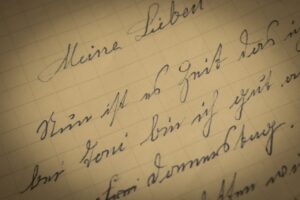 Meine Lieben
Nun ist es Zeit das i
bei Toni bin ich gut a
Donnerstag.